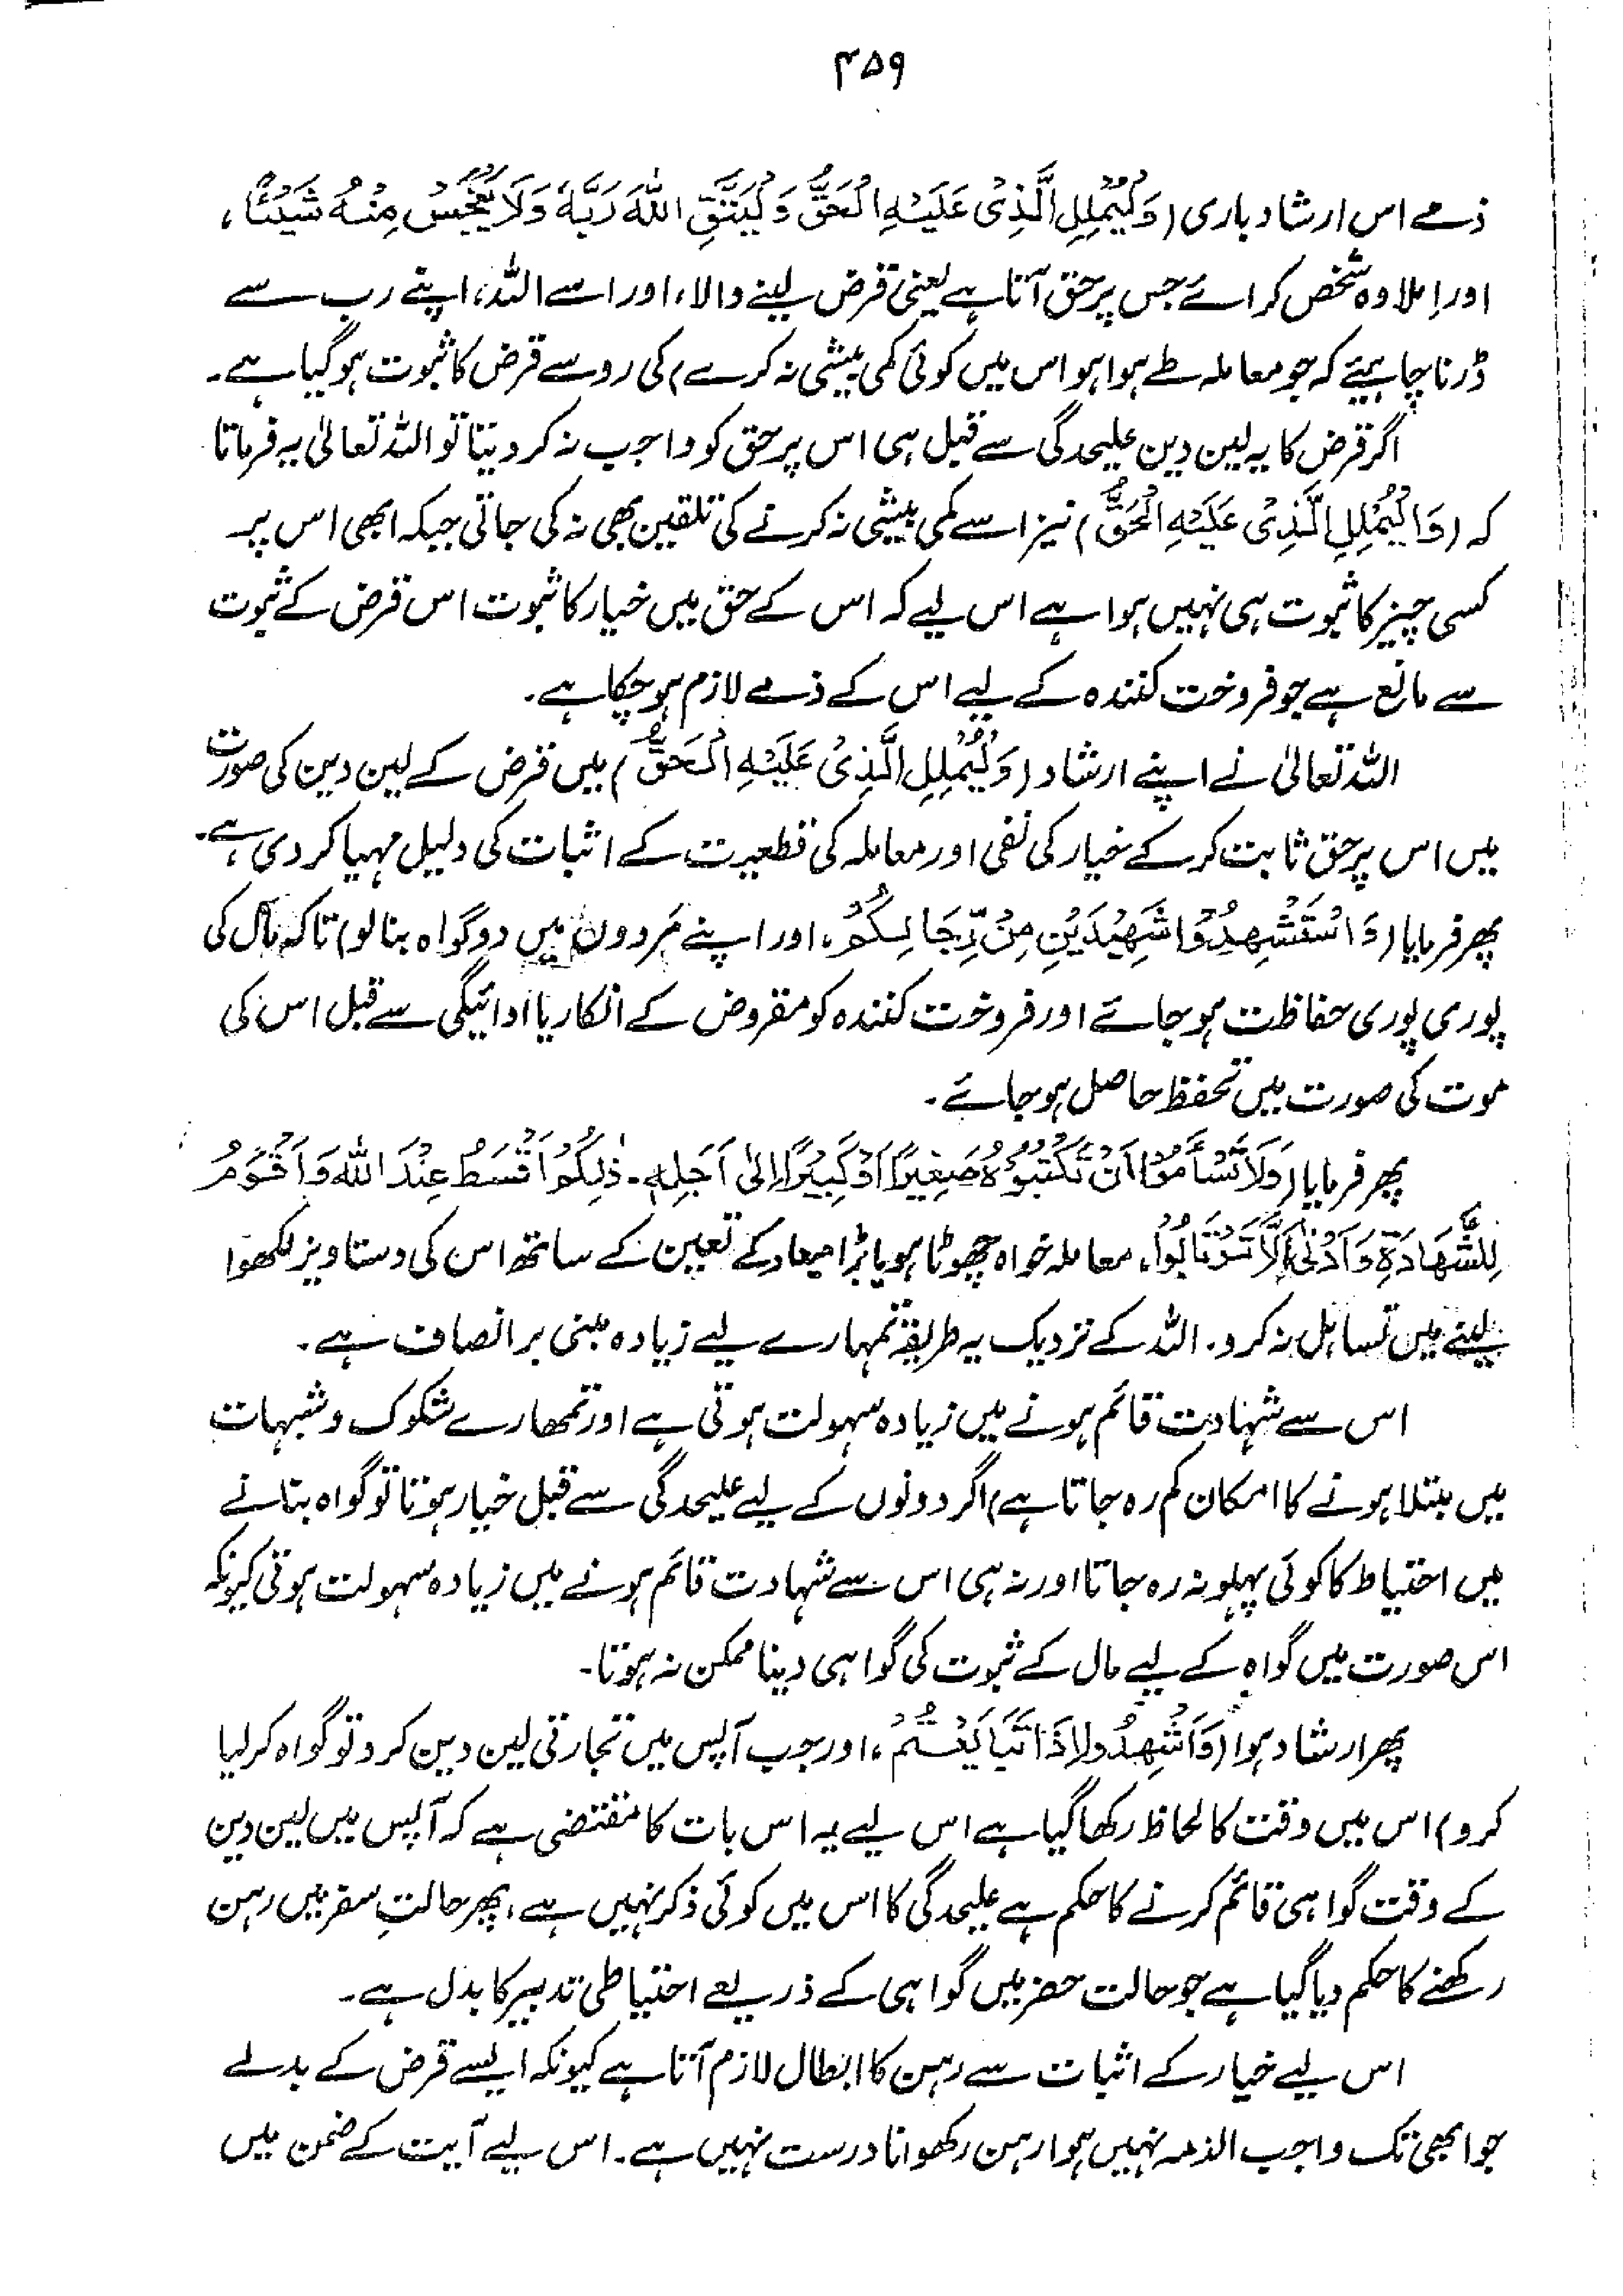 ۴۵۹
ذمے اس ارشاد باری (وَلْيُمْلِلِ الَّذِىْ عَلَيْهِ الْحَقُّ وَلْيَتَّقِ اللهَ رَبَّهٗ وَلَا يَبْخَسْ مِنْهُ شَيْئًا،
اور املا وہ شخص کرائے جس پر حق آتا ہے یعنی قرض لینے والا، اور اسے اللہ، اپنے رب سے
ڈرنا چاہیئے کہ جو معاملہ طے ہوا ہو اس میں کوئی کمی بیشی نہ کرے) کی رو سے قرض کا ثبوت ہو گیا ہے۔
اگر قرض کا یہ لین دین علیحدگی سے قبل ہی اس پر حق کو واجب نہ کر دیتا تو اللہ تعالیٰ یہ فرماتا
کہ (وَالْيُمْلِلِ الَّذِىْ عَلَيْهِ الْحَقُّ) نیز اسے کمی بیشی نہ کرنے کی تلقین بھی نہ کی جاتی جبکہ ابھی اس پر
کسی چیز کا ثبوت ہی نہیں ہوا ہے اس لیے کہ اس کے حق میں خیار کا ثبوت اس قرض کے ثبوت
سے مانع ہے جو فروخت کنندہ کے لیے اس کے ذمے لازم ہو چکا ہے۔
اللہ تعالیٰ نے اپنے ارشاد (وَلْيُمْلِلِ الَّذِىْ عَلَيْهِ الْحَقُّ) میں قرض کے لین دین کی صورت
میں اس پر حق ثابت کر کے خیار کی نفی اور معاملہ کی قطعیت کے اثبات کی دلیل مہیا کر دی ہے۔
پھر فرمایا (وَاسْتَشْهِدُوْا شَهِيْدَيْنِ مِنْ رِّجَالِكُمْ، اور اپنے مَردوں میں دو گواہ بنا لو) تاکہ مال کی
پوری پوری حفاظت ہو جائے اور فروخت کنندہ کو مقروض کے انکار یا ادائیگی سے قبل اس کی
موت کی صورت میں تحفظ حاصل ہو جائے۔
پھر فرمایا (وَلَا تَسْأَمُوْا اَنْ تَكْتُبُوْهُ صَغِيْرًا اَوْ كَبِيْرًا اِلىٰ اَجَلِهٖ۔ ذٰلِكُمْ اَقْسَطُ عِنْدَ اللهِ وَاَقْوَمُ
لِلشَّهَادَةِ وَاَدْنىٰ اَلَّا تَرْتَابُوْا، معاملہ خواہ چھوٹا ہو یا بڑا میعاد کے تعین کے ساتھ اس کی دستاویز لکھوا
لینے میں تساہل نہ کرو۔ اللہ کے نزدیک یہ طریقہ تمہارے لیے زیادہ مبنی بر انصاف ہے۔
اس سے شہادت قائم ہونے میں زیادہ سہولت ہوتی ہے اور تمھارے شکوک و شبہات
میں مبتلا ہونے کا امکان کم رہ جاتا ہے) اگر دونوں کے لیے علیحدگی سے قبل خیار ہوتا تو گواہ بنانے
میں احتیاط کا کوئی پہلو نہ رہ جاتا اور نہ ہی اس سے شہادت قائم ہونے میں زیادہ سہولت ہوتی کیونکہ
اس صورت میں گواہ کے لیے مال کے ثبوت کی گواہی دینا ممکن نہ ہوتا۔
پھر ارشاد ہوا (وَاَشْهِدُوا اِذَا تَبَايَعْتُمْ، اور جب آپس میں تجارتی لین دین کرو تو گواہ کر لیا
کرو) اس میں وقت کا لحاظ رکھا گیا ہے اس لیے یہ اس بات کا مقتضی ہے کہ آپس میں لین دین
کے وقت گواہی قائم کرنے کا حکم ہے علیحدگی کا اس میں کوئی ذکر نہیں ہے، پھر حالتِ سفر میں رہن
رکھنے کا حکم دیا گیا ہے جو حالت حضر میں گواہی کے ذریعے احتیاطی تدبیر کا بدل ہے۔
اس لیے خیار کے اثبات سے رہن کا ابطال لازم آتا ہے کیونکہ ایسے قرض کے بدلے
جو ابھی تک واجب الذمہ نہیں ہوا رہن رکھوانا درست نہیں ہے۔ اس لیے آیت کے ضمن میں